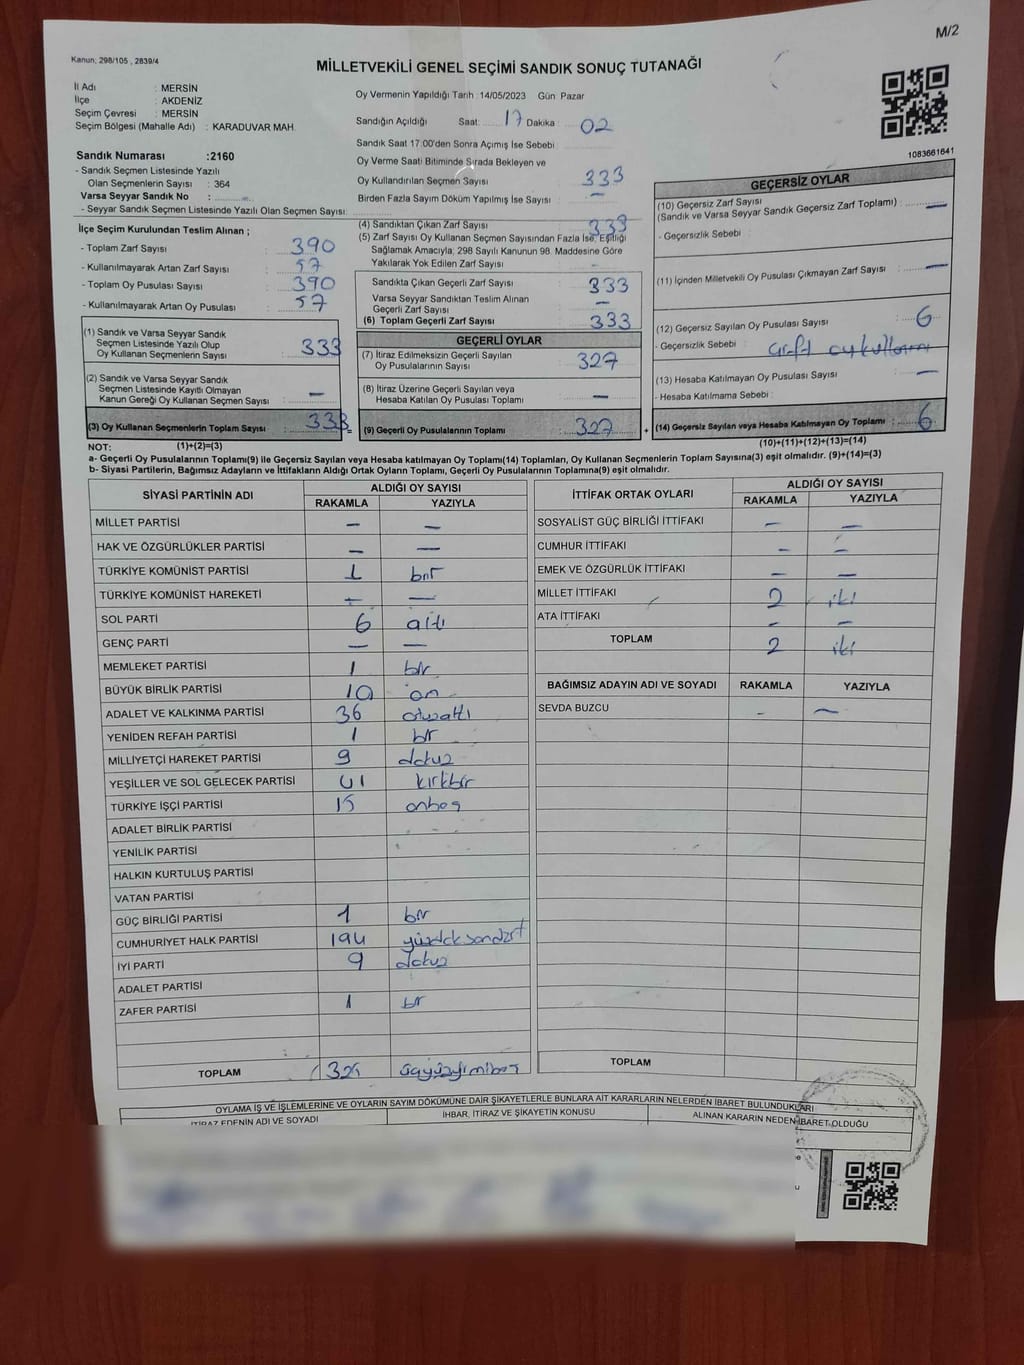 M/2
Kanun; 298/105 , 2839/4
MİLLETVEKİLİ GENEL SEÇİMİ SANDIK SONUÇ TUTANAĞI
İl Adı : MERSİN
İlçe : AKDENİZ
Seçim Çevresi : MERSİN
Seçim Bölgesi (Mahalle Adı) : KARADUVAR MAH.
Sandık Numarası :2160
- Sandık Seçmen Listesinde Yazılı
Olan Seçmenlerin Sayısı : 364
Varsa Seyyar Sandık No :
- Seyyar Sandık Seçmen Listesinde Yazılı Olan Seçmen Sayısı:
İlçe Seçim Kurulundan Teslim Alınan ;
- Toplam Zarf Sayısı : 390
- Kullanılmayarak Artan Zarf Sayısı : 57
- Toplam Oy Pusulası Sayısı : 390
- Kullanılmayarak Artan Oy Pusulası : 57
(1) Sandık ve Varsa Seyyar Sandık
Seçmen Listesinde Yazılı Olup
Oy Kullanan Seçmenlerin Sayısı : 333
(2) Sandık ve Varsa Seyyar Sandık
Seçmen Listesinde Kayıtlı Olmayan
Kanun Gereği Oy Kullanan Seçmen Sayısı : –
(3) Oy Kullanan Seçmenlerin Toplam Sayısı : 333 =
Oy Vermenin Yapıldığı Tarih :14/05/2023 Gün: Pazar
Sandığın Açıldığı Saat: 17 Dakika : 02
Sandık Saat 17.00'den Sonra Açımış İse Sebebi
Oy Verme Saati Bitiminde Sırada Bekleyen ve
Oy Kullandırılan Seçmen Sayısı : 333
Birden Fazla Sayım Döküm Yapılmış İse Sayısı : –
(4) Sandıktan Çıkan Zarf Sayısı : 333
(5) Zarf Sayısı Oy Kullanan Seçmen Sayısından Fazla İse, Eşitliği
Sağlamak Amacıyla; 298 Sayılı Kanunun 98. Maddesine Göre
Yakılarak Yok Edilen Zarf Sayısı : –
Sandıkta Çıkan Geçerli Zarf Sayısı : 333
Varsa Seyyar Sandıktan Teslim Alınan
Geçerli Zarf Sayısı : –
(6) Toplam Geçerli Zarf Sayısı : 333
GEÇERLİ OYLAR
(7) İtiraz Edilmeksizin Geçerli Sayılan
Oy Pusulalarının Sayısı : 327
(8) İtiraz Üzerine Geçerli Sayılan veya
Hesaba Katılan Oy Pusulası Toplamı : –
(9) Geçerli Oy Pusulalarının Toplamı : 327 +
1083661641
GEÇERSİZ OYLAR
(10) Geçersiz Zarf Sayısı
(Sandık ve Varsa Seyyar Sandık Geçersiz Zarf Toplamı) : –
- Geçersizlik Sebebi :
(11) İçinden Milletvekili Oy Pusulası Çıkmayan Zarf Sayısı : –
(12) Geçersiz Sayılan Oy Pusulası Sayısı : 6
- Geçersizlik Sebebi : çift oy kullanımı
(13) Hesaba Katılmayan Oy Pusulası Sayısı : –
- Hesaba Katılmama Sebebi :
(14) Geçersiz Sayılan veya Hesaba Katılmayan Oy Toplamı : 6
NOT: (1)+(2)=(3) (10)+(11)+(12)+(13)=(14)
a- Geçerli Oy Pusulalarının Toplamı(9) ile Geçersiz Sayılan veya Hesaba katılmayan Oy Toplamı(14) Toplamları, Oy Kullanan Seçmenlerin Toplam Sayısına(3) eşit olmalıdır. (9)+(14)=(3)
b- Siyasi Partilerin, Bağımsız Adayların ve İttifakların Aldığı Ortak Oyların Toplamı, Geçerli Oy Pusulalarının Toplamına(9) eşit olmalıdır.
SİYASİ PARTİNİN ADI ALDIĞI OY SAYISI
RAKAMLA YAZIYLA
MİLLET PARTİSİ – –
HAK VE ÖZGÜRLÜKLER PARTİSİ – –
TÜRKİYE KOMÜNİST PARTİSİ 1 bir
TÜRKİYE KOMÜNİST HAREKETİ – –
SOL PARTİ 6 altı
GENÇ PARTİ – –
MEMLEKET PARTİSİ 1 bir
BÜYÜK BİRLİK PARTİSİ 10 on
ADALET VE KALKINMA PARTİSİ 36 otuzaltı
YENİDEN REFAH PARTİSİ 1 bir
MİLLİYETÇİ HAREKET PARTİSİ 9 dokuz
YEŞİLLER VE SOL GELECEK PARTİSİ 41 kırkbir
TÜRKİYE İŞÇİ PARTİSİ 15 onbeş
ADALET BİRLİK PARTİSİ
YENİLİK PARTİSİ
HALKIN KURTULUŞ PARTİSİ
VATAN PARTİSİ
GÜÇ BİRLİĞİ PARTİSİ 1 bir
CUMHURİYET HALK PARTİSİ 194 yüzdoksandört
İYİ PARTİ 9 dokuz
ADALET PARTİSİ
ZAFER PARTİSİ 1 bir
TOPLAM 325 üçyüzyirmibeş
İTTİFAK ORTAK OYLARI ALDIĞI OY SAYISI
RAKAMLA YAZIYLA
SOSYALİST GÜÇ BİRLİĞİ İTTİFAKI – –
CUMHUR İTTİFAKI – –
EMEK VE ÖZGÜRLÜK İTTİFAKI – –
MİLLET İTTİFAKI 2 iki
ATA İTTİFAKI – –
TOPLAM 2 iki
BAĞIMSIZ ADAYIN ADI VE SOYADI RAKAMLA YAZIYLA
SEVDA BUZCU – –
TOPLAM
OYLAMA İŞ VE İŞLEMLERİNE VE OYLARIN SAYIM DÖKÜMÜNE DAİR ŞİKAYETLERLE BUNLARA AİT KARARLARIN NELERDEN İBARET BULUNDUKLARI
İTİRAZ EDENİN ADI VE SOYADI İHBAR, İTİRAZ VE ŞİKAYETİN KONUSU ALINAN KARARIN NEDEN İBARET OLDUĞU